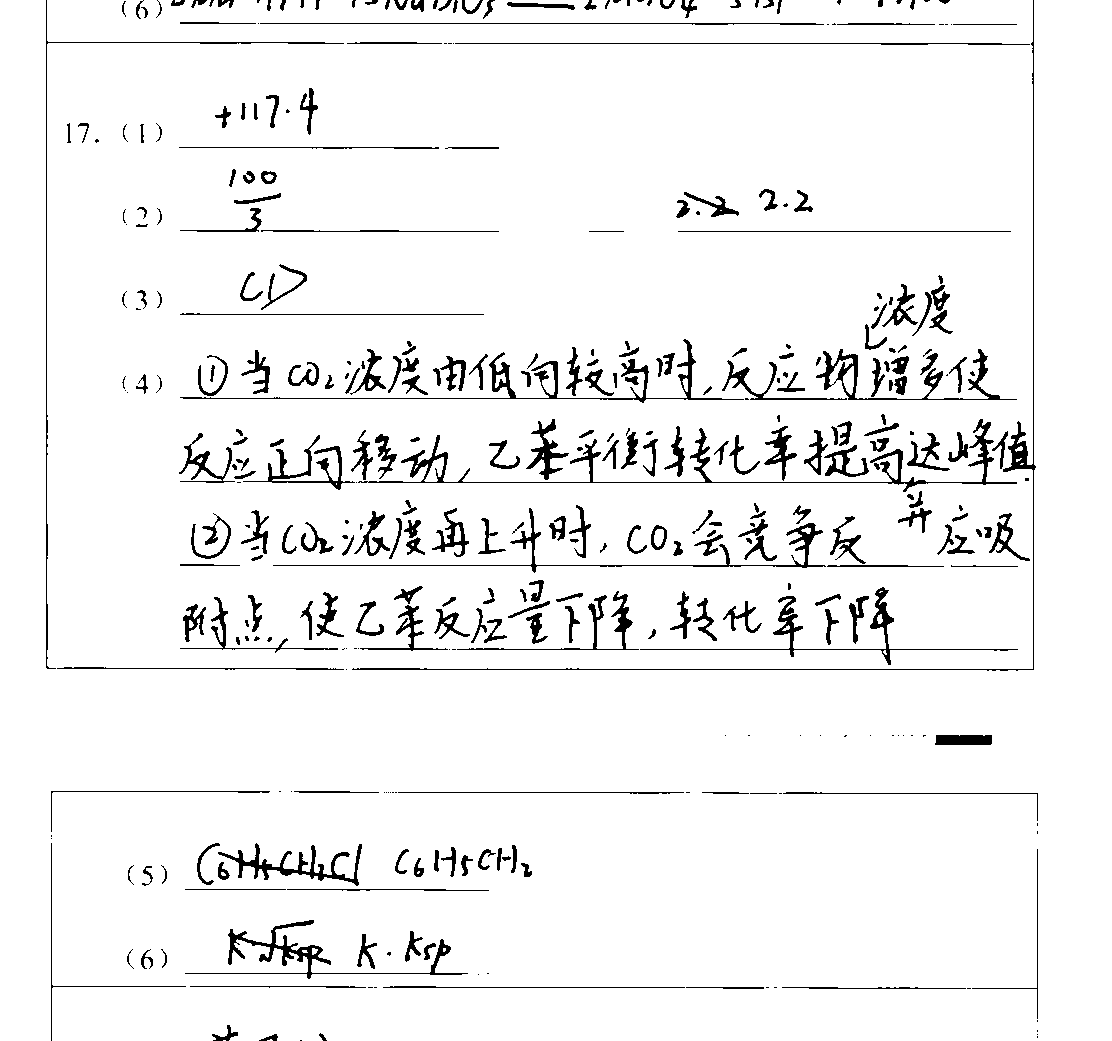 (6)
17. (1) +117.4
(2) 100/3 2.2 2.2
(3) C1>
浓度
(4) ①当CO₂浓度由低向较高时,反应物增多使
反应正向移动,乙苯平衡转化率提高达峰值.
②当CO₂浓度再上升时,CO₂会竞争反应吸
附点,使乙苯反应量下降,转化率下降
(5) C6H5CH2Cl C6H5CH2
(6) K√Ksp K·Ksp